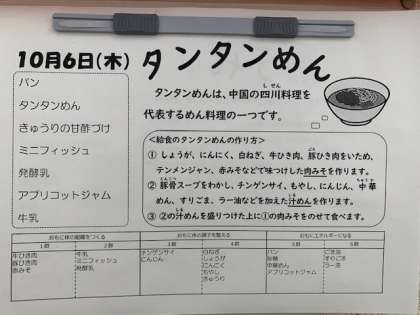 10月6日(木)
タンタンめん
パン
タンタンめん
きゅうりの甘酢づけ
ミニフィッシュ
発酵乳
アプリコットジャム
牛乳
タンタンめんは、中国の四川料理を
しせん
代表するめん料理の一つです。
<給食のタンタンめんの作り方>
① しょうが、にんにく、白ねぎ、牛ひき肉、豚ひき肉をいため、
テンメンジャン、赤みそなどで味つけした肉みそを作ります。
② 豚骨スープをわかし、チンゲンサイ、もやし、にんじん、中華
めん、すりごま、ラー油などを加えた汁めんを作ります。
③ ②の汁めんを盛りつけた上に①の肉みそをのせて食べます。
おもに体の組織をつくる
おもに体の調子を整える
おもにエネルギーになる
1群
2群
3群
4群
5群
6群
牛ひき肉
豚ひき肉
赤みそ
牛乳
ミニフィッシュ
発酵乳
チンゲンサイ
にんじん
白ねぎ
しょうが
にんにく
もやし
きゅうり
パン
砂糖
中華めん
アプリコットジャム
ごま油
すりごま
ラー油